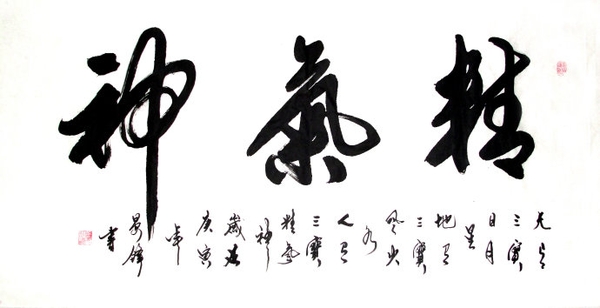 精氣神
天有
三寶
日月
星
地有
三寶
風火
水
人有
三寶
精氣
神
歲在
庚寅
年
書